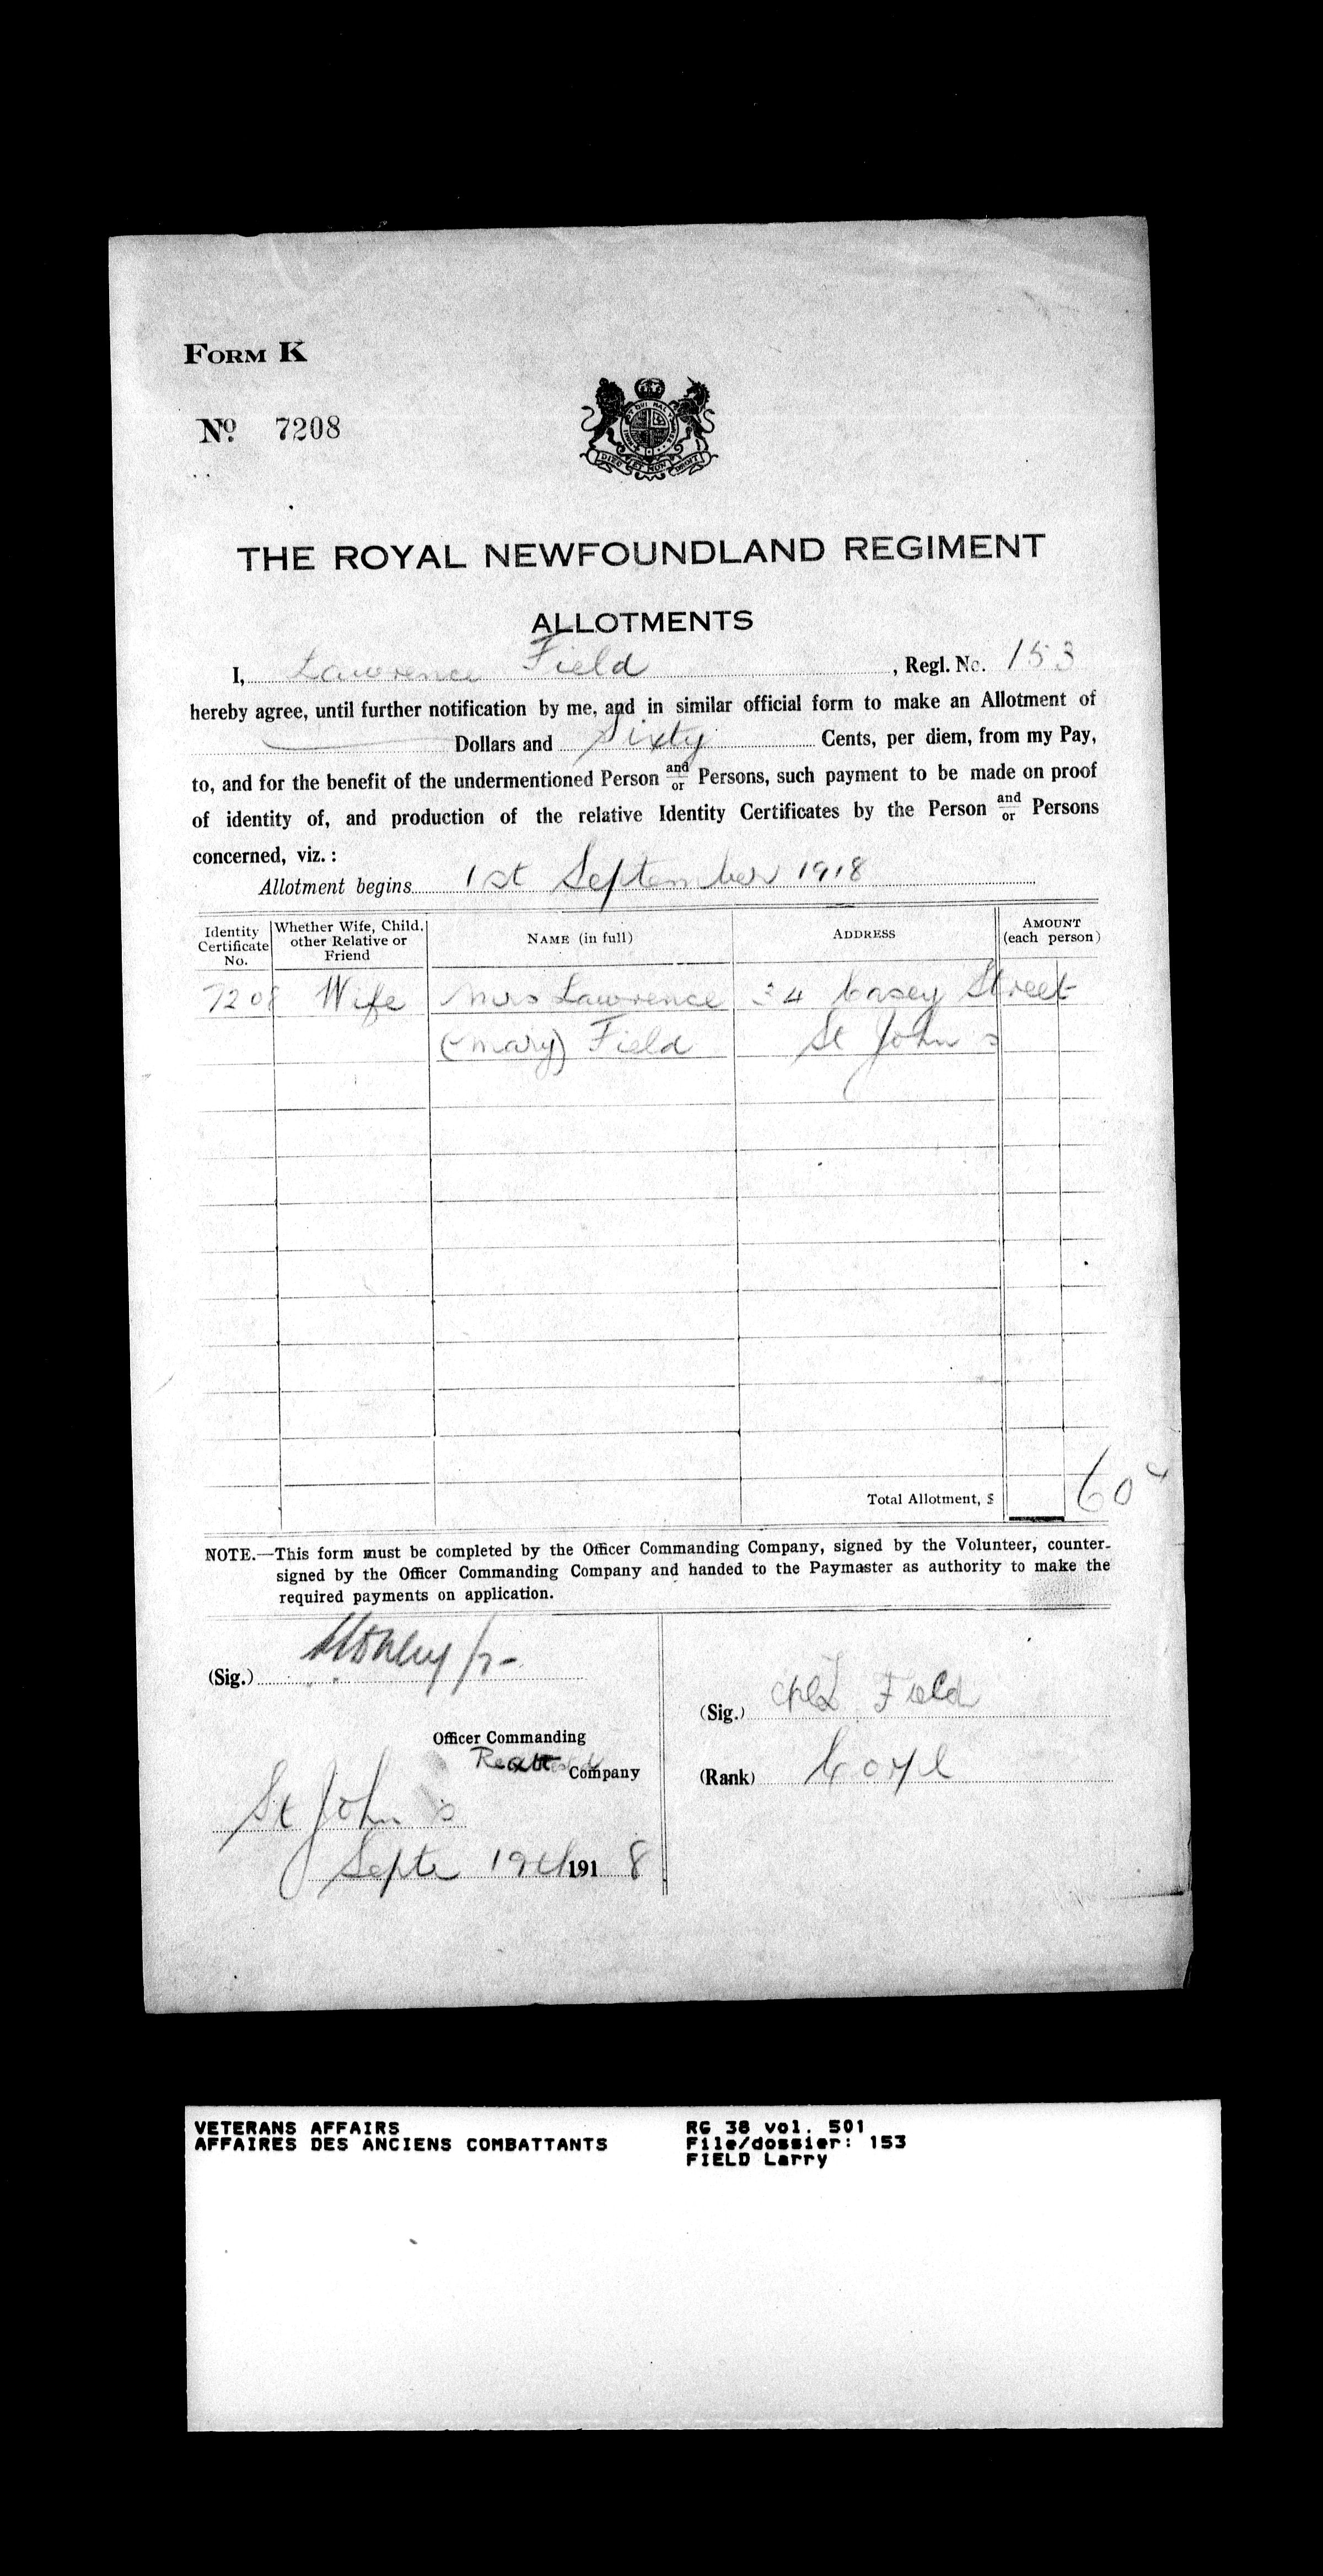 FORM K
No. 7208
DIEU ET MON DROIT
THE ROYAL NEWFOUNDLAND REGIMENT
ALLOTMENTS
I, Lawrence Field, Regl. No. 153
hereby agree, until further notification by me, and in similar official form to make an Allotment of
Dollars and Sixty Cents, per diem, from my Pay,
to, and for the benefit of the undermentioned Person and/or Persons, such payment to be made on proof
of identity of, and production of the relative Identity Certificates by the Person and/or Persons
concerned, viz. :
Allotment begins 1st September 1918
Identity Certificate No. Whether Wife, Child, other Relative or Friend NAME (in full) ADDRESS AMOUNT (each person)
7208 Wife Mrs Lawrence 34 Casey Street
(Mary) Field St John s
Total Allotment, $ 60
NOTE.—This form must be completed by the Officer Commanding Company, signed by the Volunteer, counter-
signed by the Officer Commanding Company and handed to the Paymaster as authority to make the
required payments on application.
(Sig.)
(Sig.) Field
Officer Commanding
Company
(Rank) Corpl
St John s
Septr 19th 1918
VETERANS AFFAIRS RG 38 vol. 501
AFFAIRES DES ANCIENS COMBATTANTS File/dossier: 153
FIELD Larry